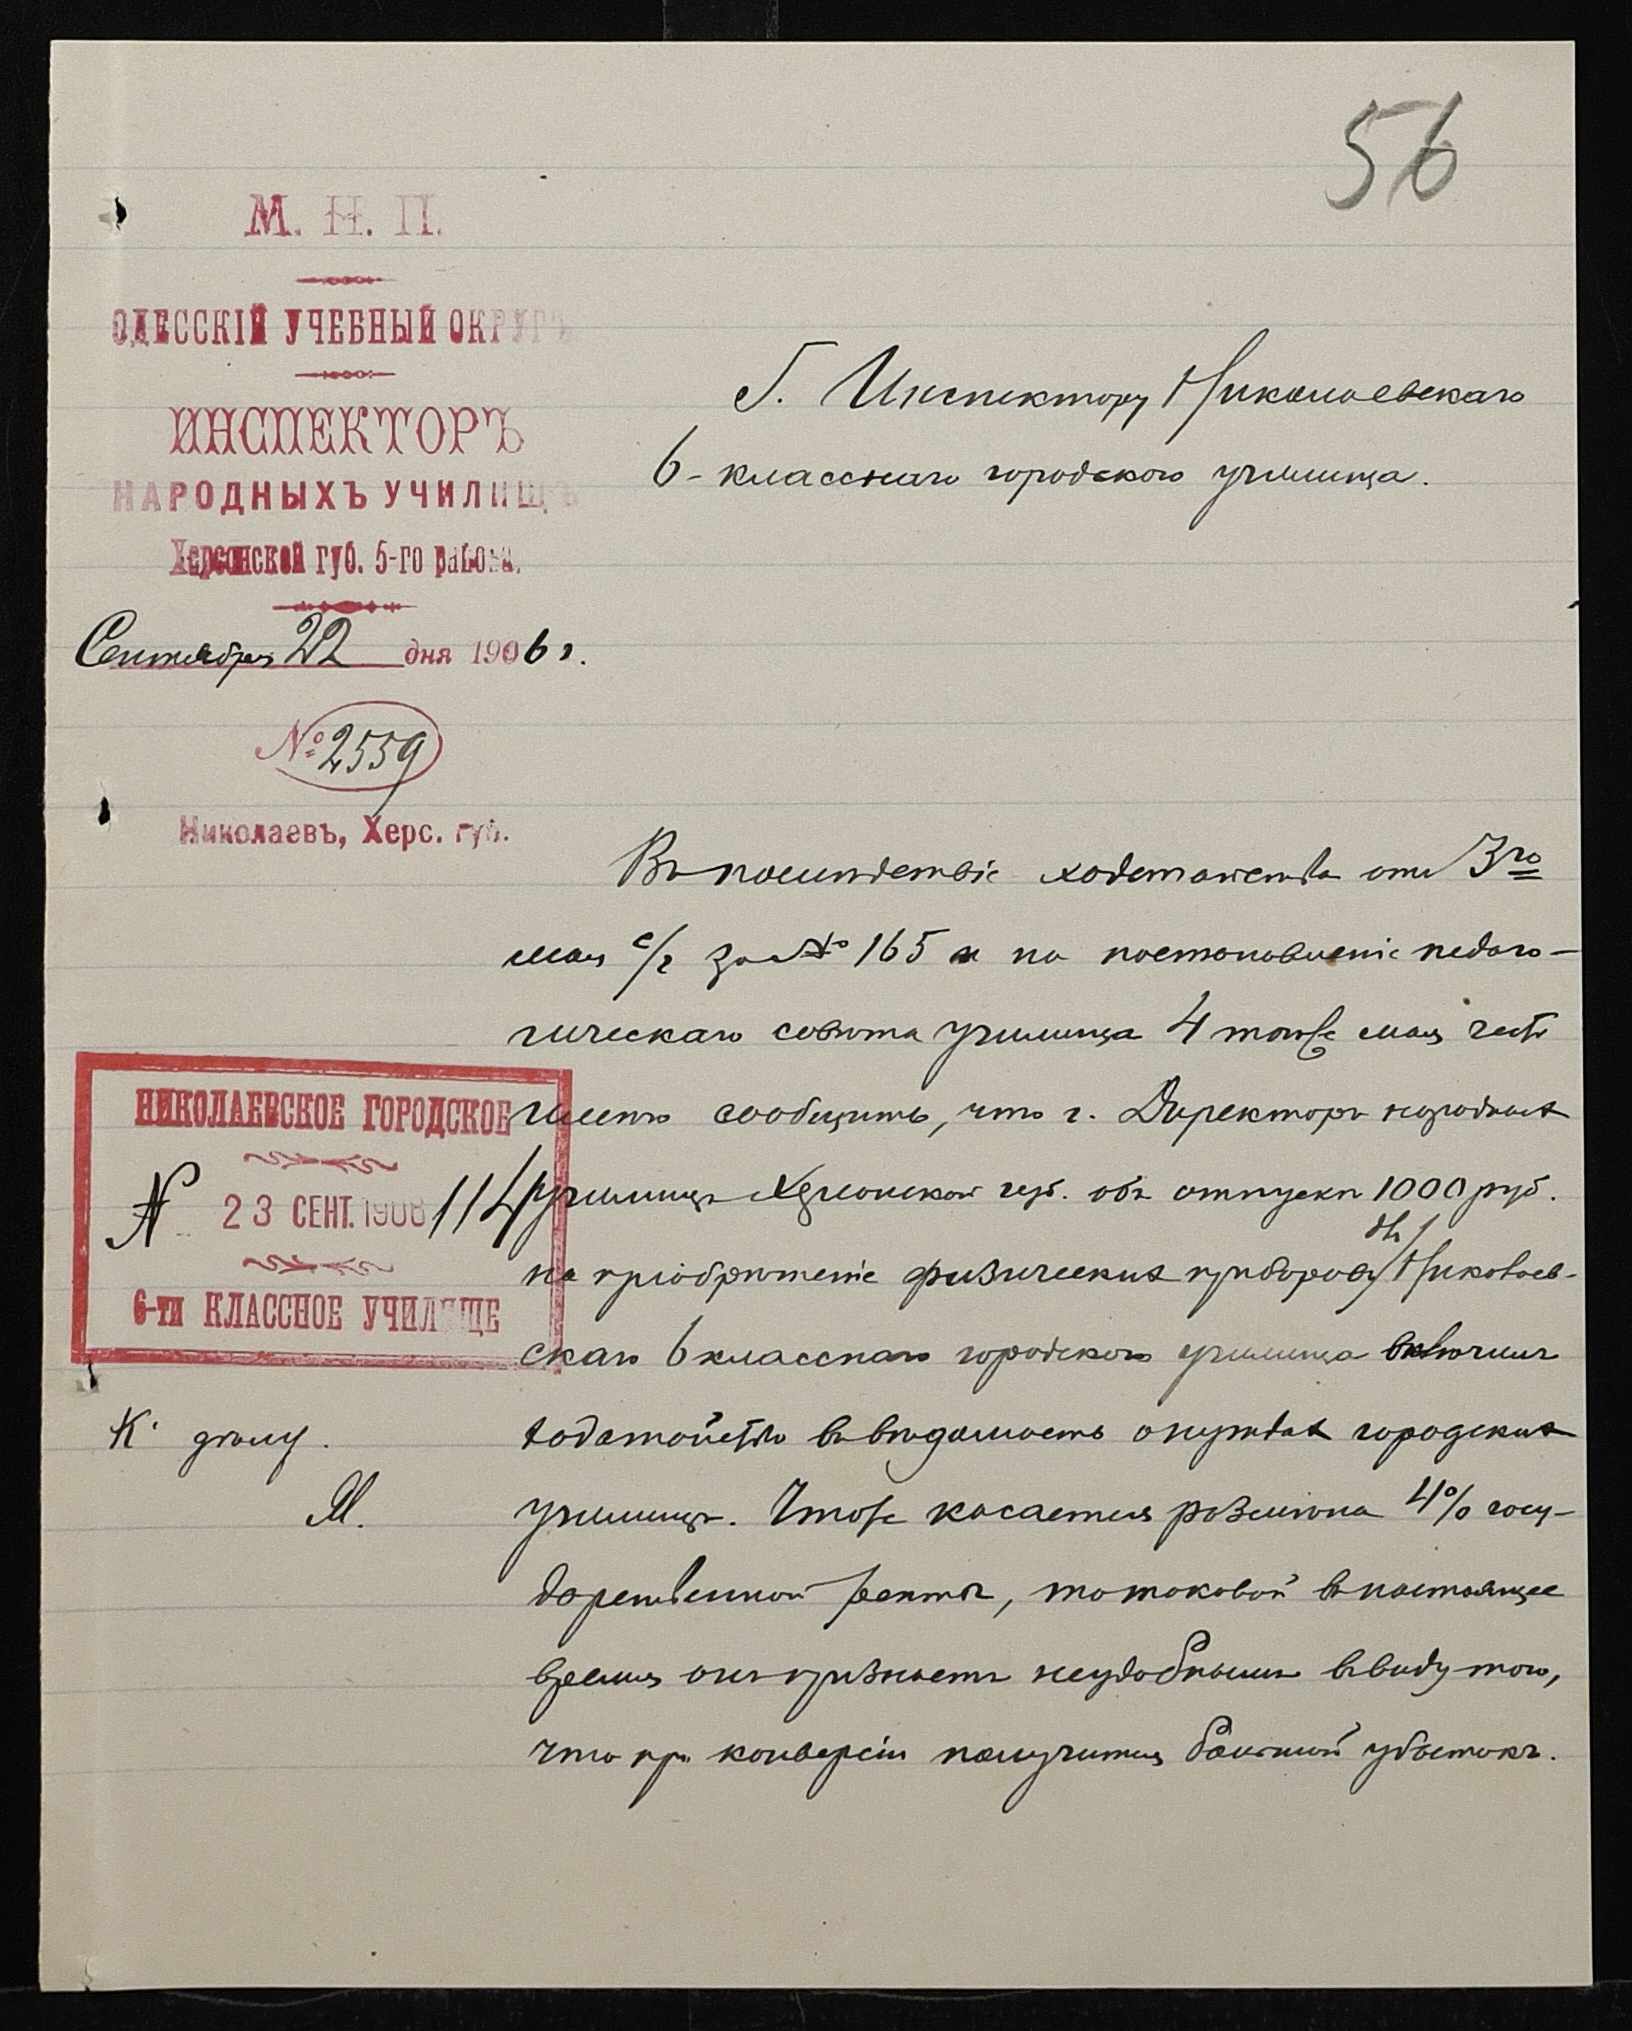 56
М. Н. П.
ОДЕССКІЙ УЧЕБНЫЙ ОКРУГЪ
ИНСПЕКТОРЪ
НАРОДНЫХЪ УЧИЛИЩЪ
Херсонской губ. 5-го района.
Сентября 22 дня 1906 г.
№ 2559
Николаевъ, Херс. губ.
Г. Инспектору Николаевскаго
6-класснаго городского училища.
Въ послѣдствіе ходатайства отъ 3го
мая с/г за № 165 и на постановленіе педаго-
гическаго совѣта училища 4 того же мая честь
имѣю сообщить, что г. Директоръ народныхъ
училищъ Херсонской губ. объ отпускѣ 1000 руб.
на пріобрѣтеніе физическихъ приборовъ для Николаев-
скаго 6 класснаго городского училища включилъ
ходатайство въ вѣдомость о нуждахъ городскихъ
училищъ. Что же касается размѣна 4% госу-
дарственной ренты, то таковой въ настоящее
время онъ признаетъ неудобнымъ въ виду того,
что при конверсіи получится большой убытокъ.
НИКОЛАЕВСКОЕ ГОРОДСКОЕ
№ 23 СЕНТ. 1906 114
6-ти КЛАССНОЕ УЧИЛИЩЕ
Къ дѣлу.
М.